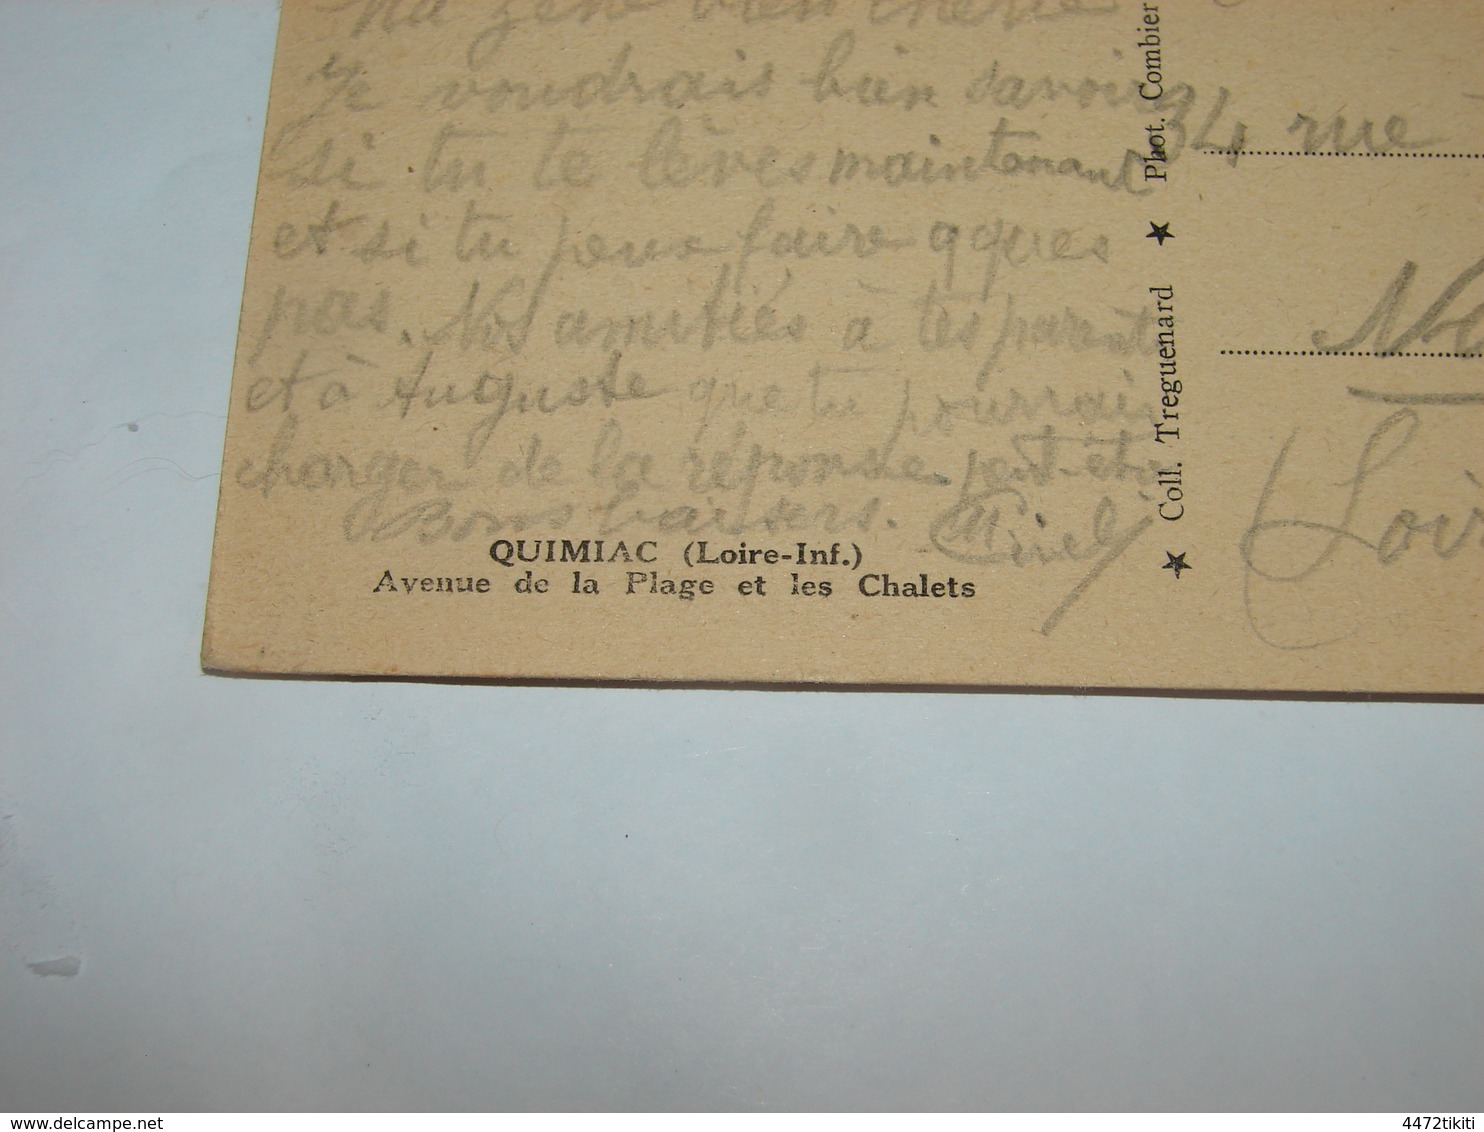 Ma Zène bien chérie
Je voudrais bien savoir
si tu te lèves maintenant
et si tu peux faire qques
pas. Nos amitiés à tes parents
et à Auguste que tu pourrais
charger de la réponse peut-être
Bons baisers.
QUIMIAC (Loire-Inf.)
Avenue de la Plage et les Chalets
Coll. Treguenard ★ Phot. Combier
34, rue
Loir
delcampe.net
4472tikiti